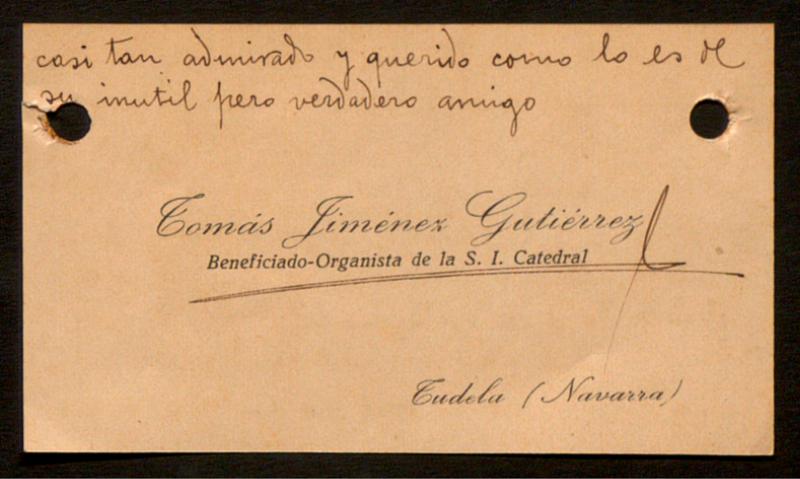 casi tan admirado y querido como lo es de
su inutil pero verdadero amigo
Tomás Jiménez Gutiérrez
Beneficiado-Organista de la S. I. Catedral
Tudela (Navarra)